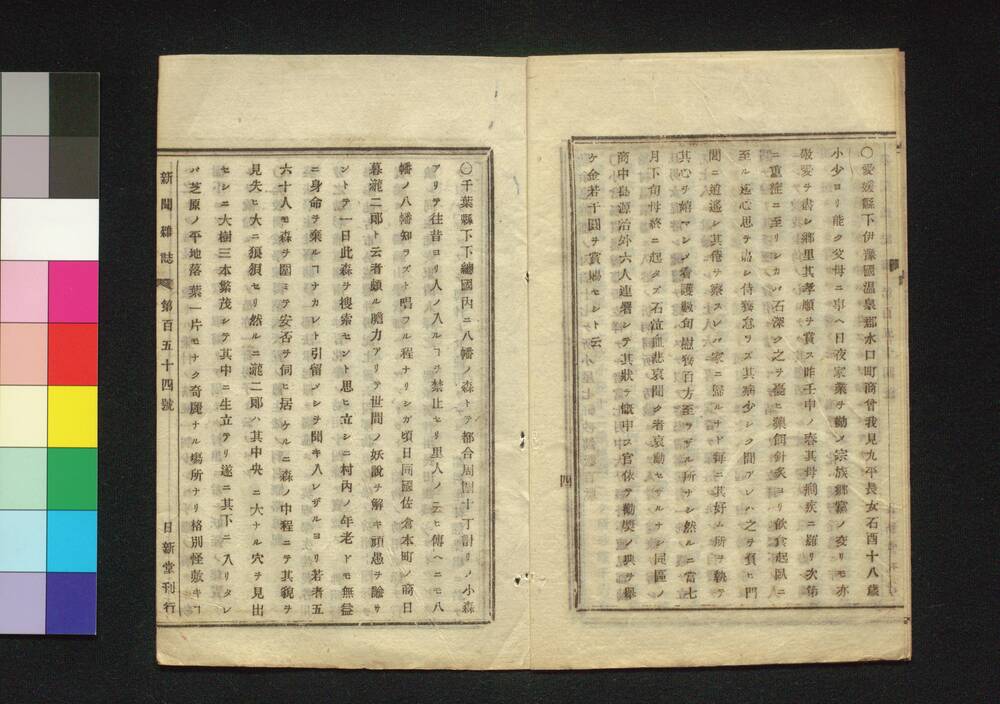 〇愛媛縣下伊豫國温泉郡水口町商曾我見九平長女石酉十八歳
小少ヨリ能ク父母ニ事ヘ日夜家業ヲ勤メ宗族郷黨ノ交リモ亦
敬愛ヲ盡シ郷里其孝順ヲ賞ス昨壬申ノ春其母痢疾ニ罹リ次第
ニ重症ニ至リシカバ石深ク之ヲ憂ヒ藥餌針灸ヨリ飲食起臥ニ
至ル迄心思ヲ盡シ侍養怠ラズ其病少シク間アレハ之ヲ負ヒ門
間ニ逍遙シ其倦ヲ察スレバ家ニ歸ルナド毎ニ其好ム所ヲ執テ
其心ヲ娯マシメ看護數旬慰養百方至ラザル所ナシ然ルニ當七
月下旬母終ニ起タズ石泣血悲哀聞ク者哀動セザルナシ同區ノ
商中島源治外六人連署シテ其狀ヲ懐中ス官依テ勸奬ノ典ヲ擧
ケ金若干圓ヲ賞賜セシト云
四
〇千葉縣下下總國内ニ八幡ノ森トテ都合周圍十丁計リノ小森
アリテ往昔ヨリ人ノ入ルヿヲ禁止セリ里人ノ云ヒ傳ヘニモ八
幡ノ八幡知ラズト唱フル程ナリシガ頃日同國佐倉本町ノ商日
暮瀧二郎ト云者頗ル膽力アリテ世間ノ妖說ヲ解キ頑愚ヲ諭サ
ントテ一日此森ヲ搜索セント思ヒ立シニ村内ノ年老ドモ無益
ニ身命ヲ棄ルヿナカレト引留メシヲ聞キ入レザルヨリ若者五
六十人モ森ヲ圍ミテ安否ヲ伺ヒ居ケルニ森ノ中程ニテ其貌ヲ
見失ヒ大ニ狼狽セリ然ルニ瀧二郎ハ其中央ニ大ナル穴ヲ見出
セシニ大樹三本繁茂シテ其中ニ生立テリ遂ニ其下ニ入リタレ
バ芝原ノ平地落葉一片モナク奇麗ナル場所ナリ格別怪敷キヿ
新聞雜誌 第百五十四號 日新堂刊行